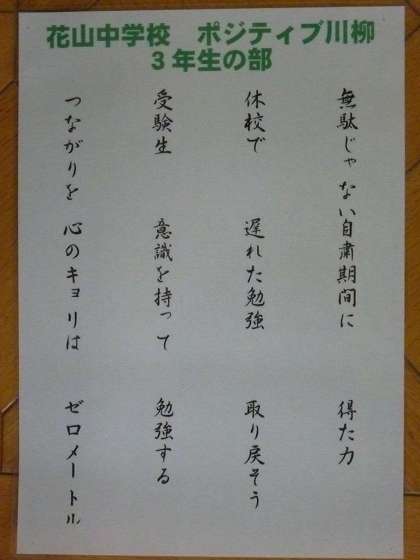 花山中学校　ポジティブ川柳
3年生の部
無駄じゃない自粛期間に　得た力
休校で　遅れた勉強　取り戻そう
受験生　意識を持って　勉強する
つながりを　心のキョリは　ゼロメートル